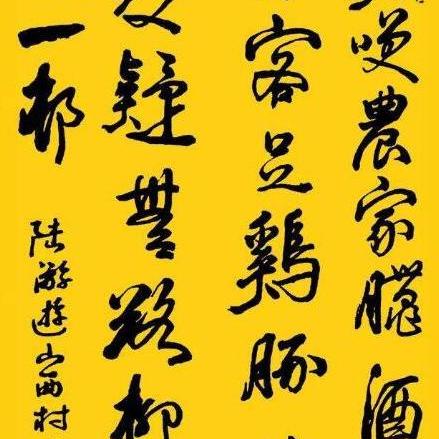 咲農家臘酒
客足鷄豚
疑無路柳
一邨
陸游遊山西村